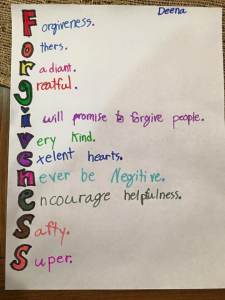 Deena
Forgiveness.
others.
radiant.
greatful.
i will promise to forgive people.
Very kind.
exelent hearts.
never be Negitive.
encourage helpfulness.
Safty.
Super.